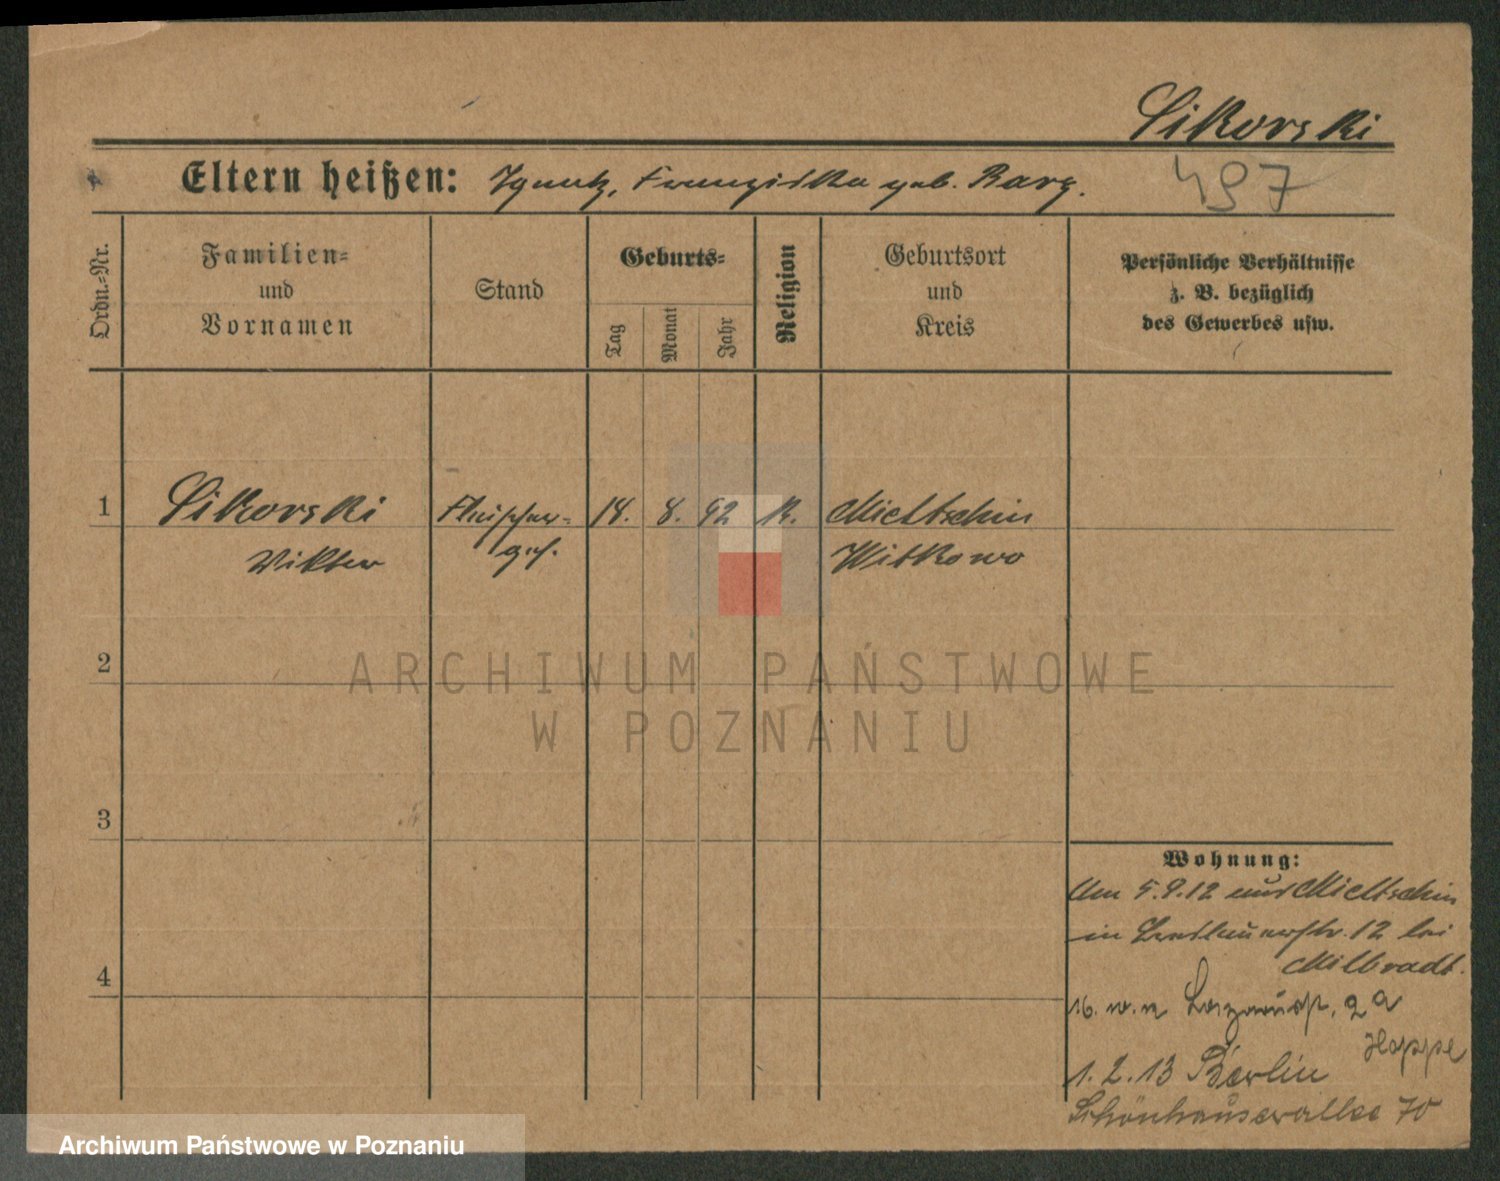 Sikorski
Eltern heißen: Ignatz, Franziska geb. Barg.
497
Ordn.-Nr.
Familien-
und
Vornamen
Stand
Geburts-
Tag
Monat
Jahr
Religion
Geburtsort
und
Kreis
Persönliche Verhältnisse
z. B. bezüglich
des Gewerbes usw.
1 Sikorski Fleischer- 18. 8. 92 K. Mieltschin
Viktor ges. Witkowo
2
ARCHIWUM PAŃSTWOWE
W POZNANIU
3
Wohnung:
Am 5.9.12 aus Mieltschin
in 12 bei
Milbradt.
4
16. w. n Lazarusstr. 2a
Hoppe
1.2.13 Berlin
Schönhauserallee 70
Archiwum Państwowe w Poznaniu